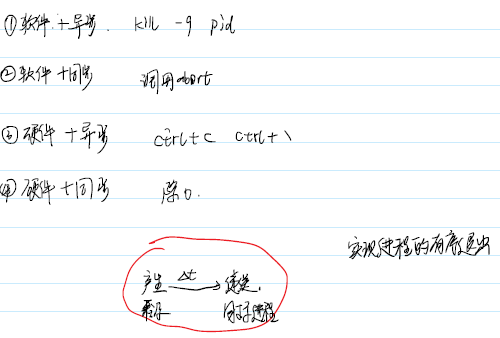 ①软件+异步. kill -9 pid
②软件+同步 调用abort
③硬件+异步 ctrl+c ctrl+\
④硬件+同步 除0.
实现进程的有序退出
产生 Δt 递送.
用于进程